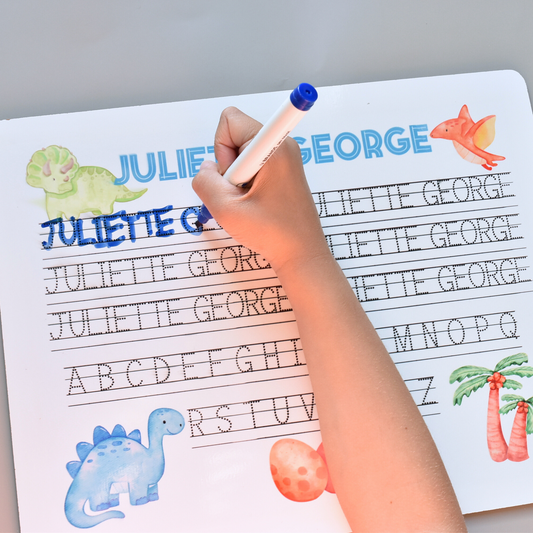 JULIETTE GEORGE
JULIETTE G JULIETTE GEORGE
JULIETTE GEORGE JULIETTE GEORGE
JULIETTE GEORGE JULIETTE GEORGE
A B C D E F G H I M N O P Q
R S T U V Z